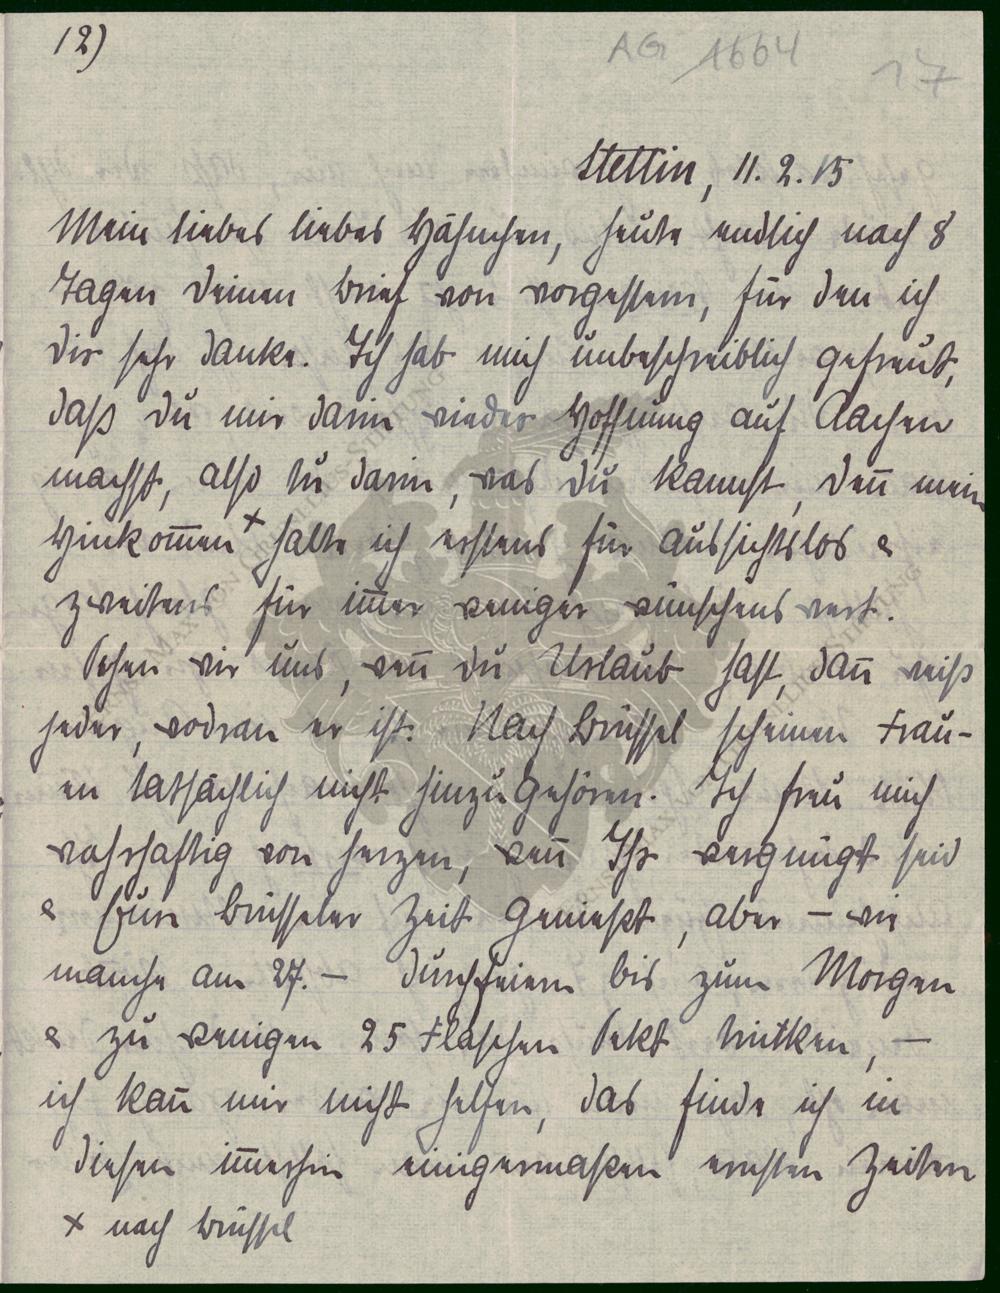 12)
AG 1664
17
Stettin, 11. 2. 15
Mein liebes liebes Hähnchen, heute endlich nach 8
Tagen Deinen Brief von vorgestern, für den ich
Dir sehr danke. Ich hab mich unbeschreiblich gefreut,
daß Du mir darin wieder Hoffnung auf Aachen
machst, also tu darin, was Du kannst, deñ mein
Hinkom̄en x halte ich erstens für aussichtslos &
zweitens für im̄er weniger wünschenswert.
Sehen wir uns, weñ Du Urlaub hast, dañ weiß
jeder, wodran er ist. Nach Brüssel scheinen Frau-
en tatsächlich nicht hinzugehören. Ich freu mich
wahrhaftig von Herzen, weñ Ihr vergnügt seid
& Eure Brüsseler Zeit genießt, aber – wie
manche am 27. – durchfeiern bis zum Morgen
& zu wenigen 25 Flaschen Sekt trinken, –
ich kañ mir nicht helfen, das finde ich in
diesen im̄erhin einigermaßen ernsten Zeiten
x nach Brüssel